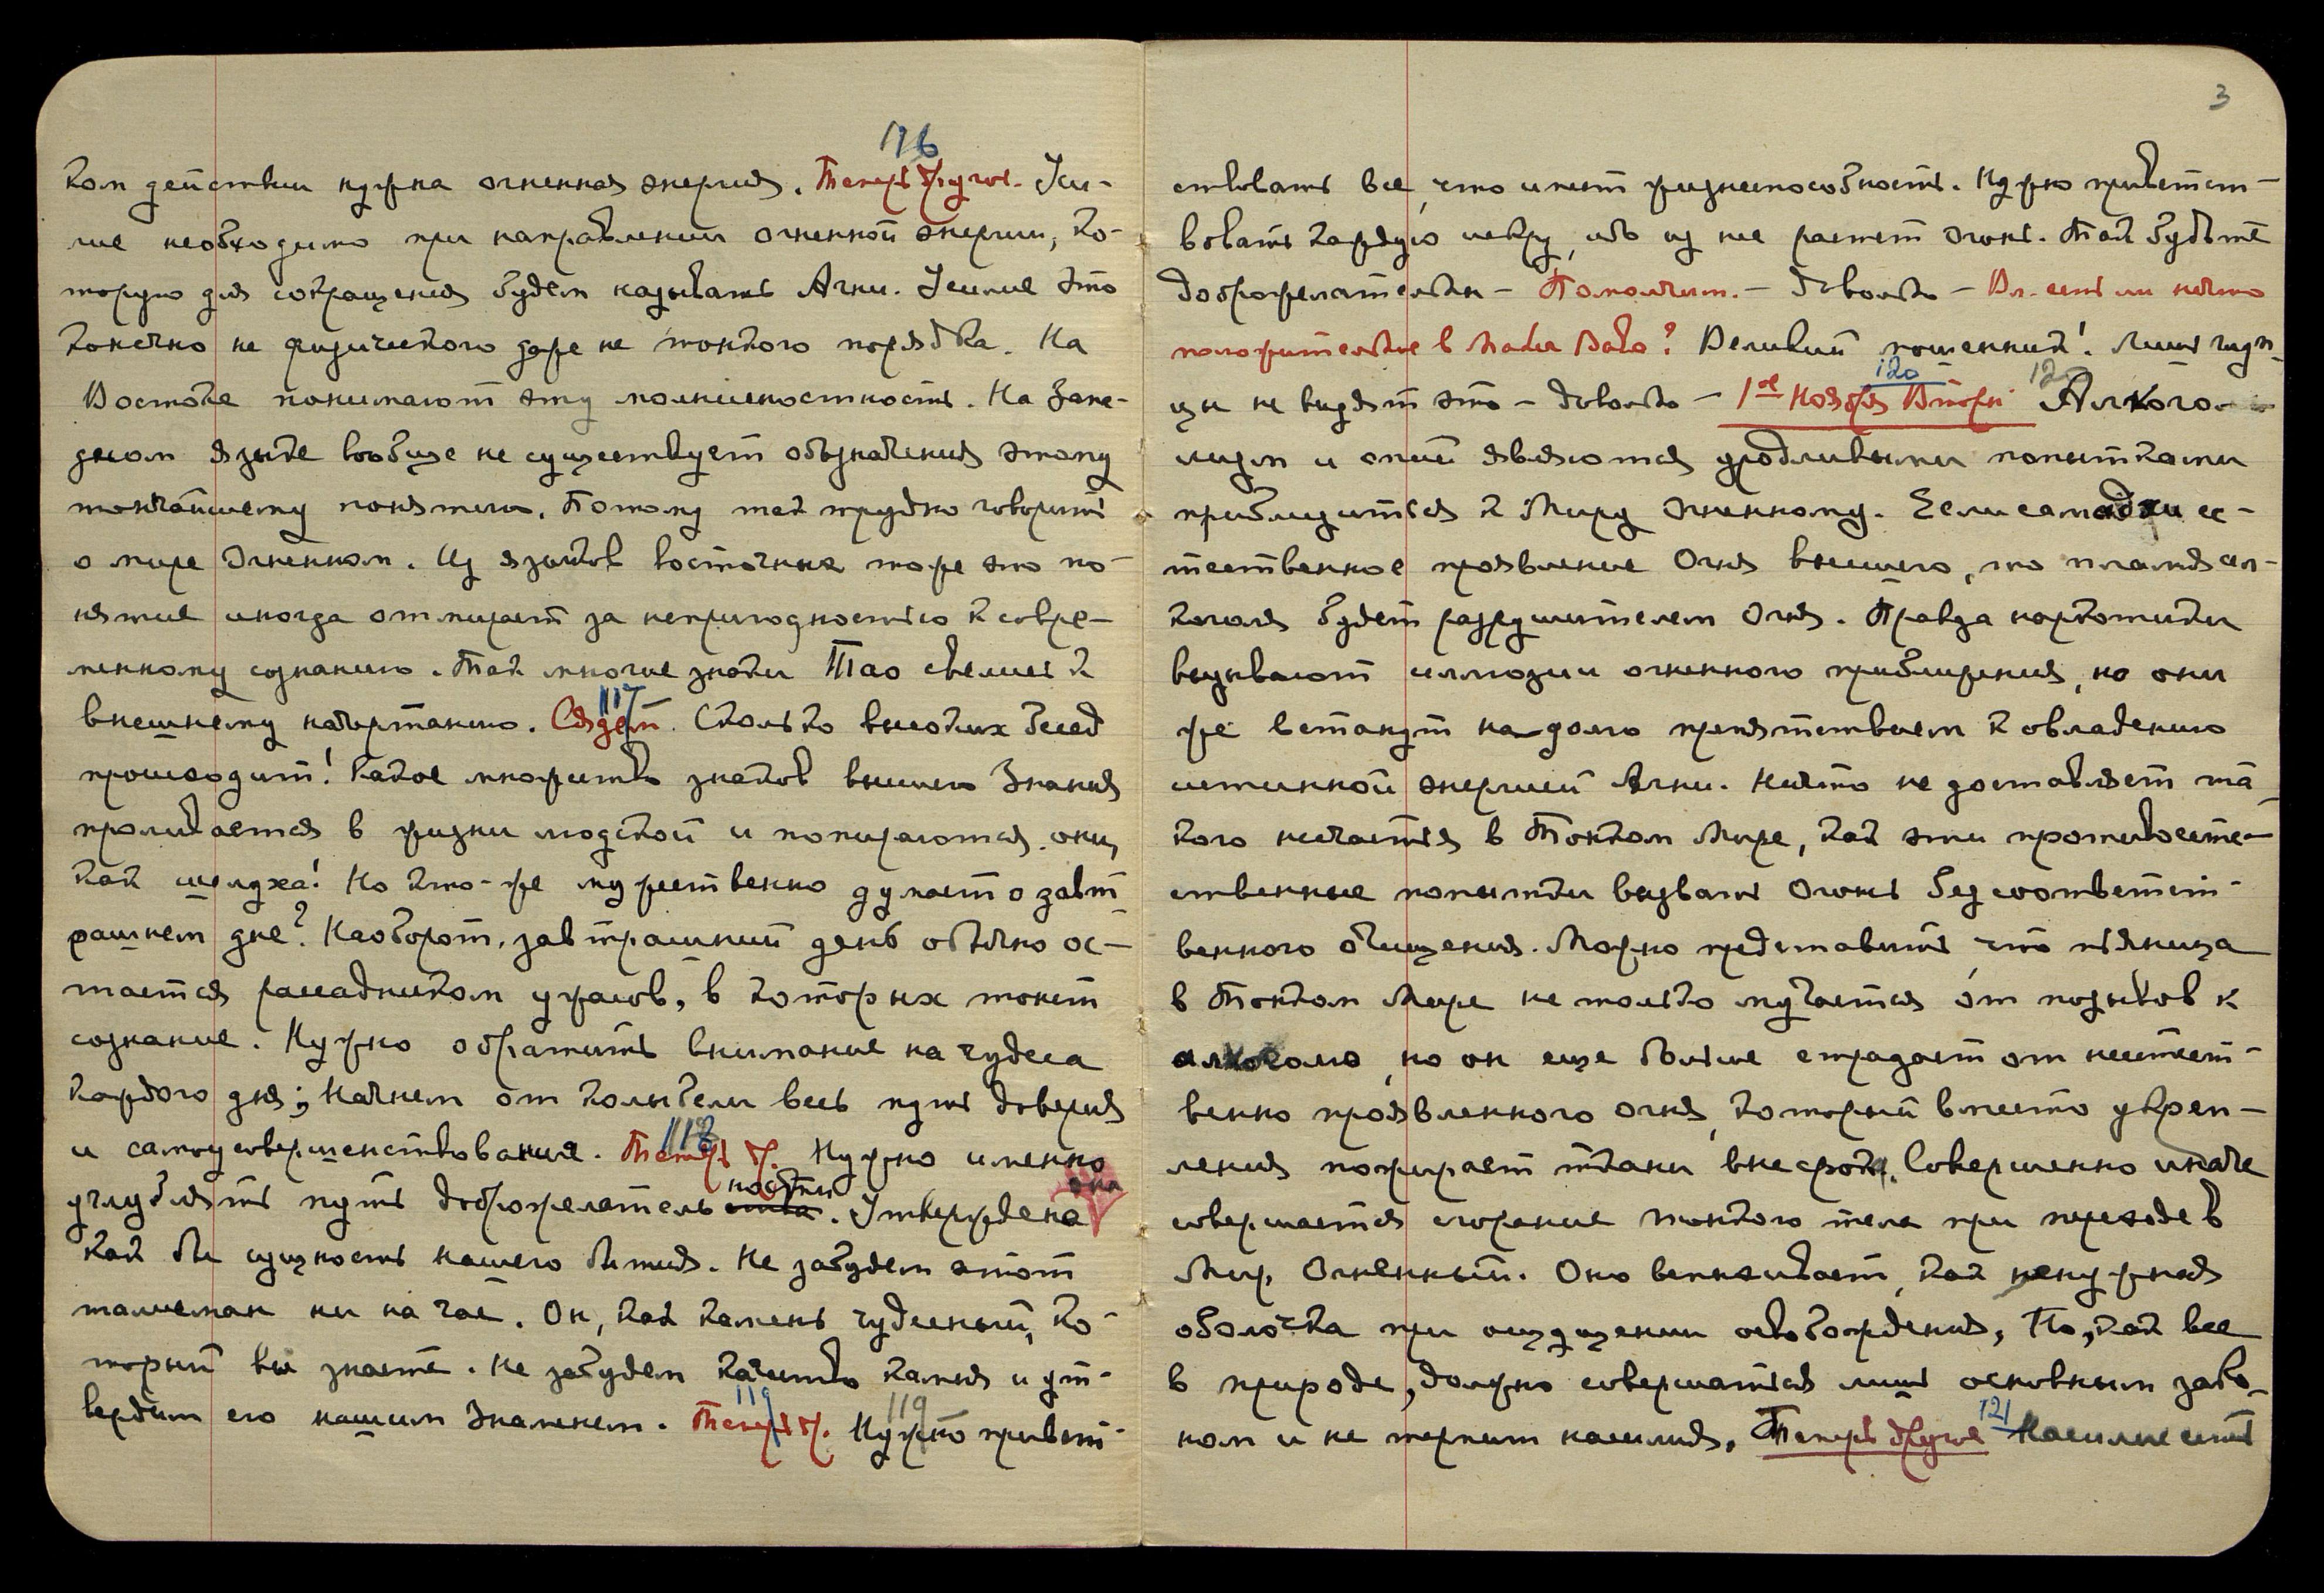 116
ком действии нужна огненная энергия. Теперь другое. Уси-
лие необходимо при направлении огненной энергии, ко-
торую для сокращения будем называть Агни. Усилие это
конечно не физического даже не тонкого порядка. На
Востоке понимают эту молниеносность. На Запа-
дном языке вообще не существует обозначения этому
тончайшему понятию. Потому так трудно говорить
о мире Огненном. Из языков восточных тоже это по-
нятие иногда отмирает за непригодностью к совре-
менному сознанию. Так многие знаки Тао свелись к
117
внешнему начертанию. Сядем. Столько высоких бесед
происходит! Какое множество знаков высшего Знания
проливается в жизни людской и попираются они,
как шелуха! Но кто-же мужественно думает о завт-
рашнем дне? Наоборот, завтрашний день обычно ос-
тается рассадником ужасов, в которых тонет
сознание. Нужно обратить внимание на чудеса
каждого дня; Начнем от колыбели весь путь доверия
118
и самоусовершенствования. Теперь д. Нужно именно
ности она
углублять путь доброжелательства. Утверждена
как бы сущность нашего бытия. Не забудем этот
талисман ни на час. Он, как камень чудесный, ко-
торый вы знаете. Не забудем качество камня и ут-
119 119
вердим его нашим Знаменем. Теперь д. Нужно привет-
3
ствовать все, что имеет жизнеспособность. Нужно приветст-
вовать каждую искру, ибо из нее растет огонь. Так будьте
доброжелательны – Помолчим. – Довольно – Вл. есть ли нечто
положительное в Вово? Великий мошенник! Лишь глуп-
120 120
цы не видят это – Довольно – 1ое Ноября Вторн. Алкого-
лизм и опий являются уродливыми попытками
приблизиться к Миру Огненному. Если самадхи ес-
тественное проявление Огня высшего, то пламя ал-
коголя будет разрушителем Огня. Правда наркотики
вызывают иллюзии огненного приближения, но они
же встанут надолго препятствием к овладению
истинной энергией Агни. Ничто не доставляет та-
кого несчастья в Тонком Мире, как эти противоесте-
ственные попытки вызвать Огонь без соответст-
венного очищения. Можно представить что пьяница
в Тонком Мире не только мучается от позывов к
алкоголю, но он еще больше страдает от неестест-
венно проявленного огня, который вместо укреп-
ления пожирает ткани вне срока. Совершенно иначе
совершается сгорание тонкого тела при переходе в
Мир Огненный. Оно вспыхивает, как ненужная
оболочка при ощущении освобождения, Но, как все
в природе, должно совершаться лишь основным зако-
121
ном и не терпит насилия. Теперь другое Насилие есть